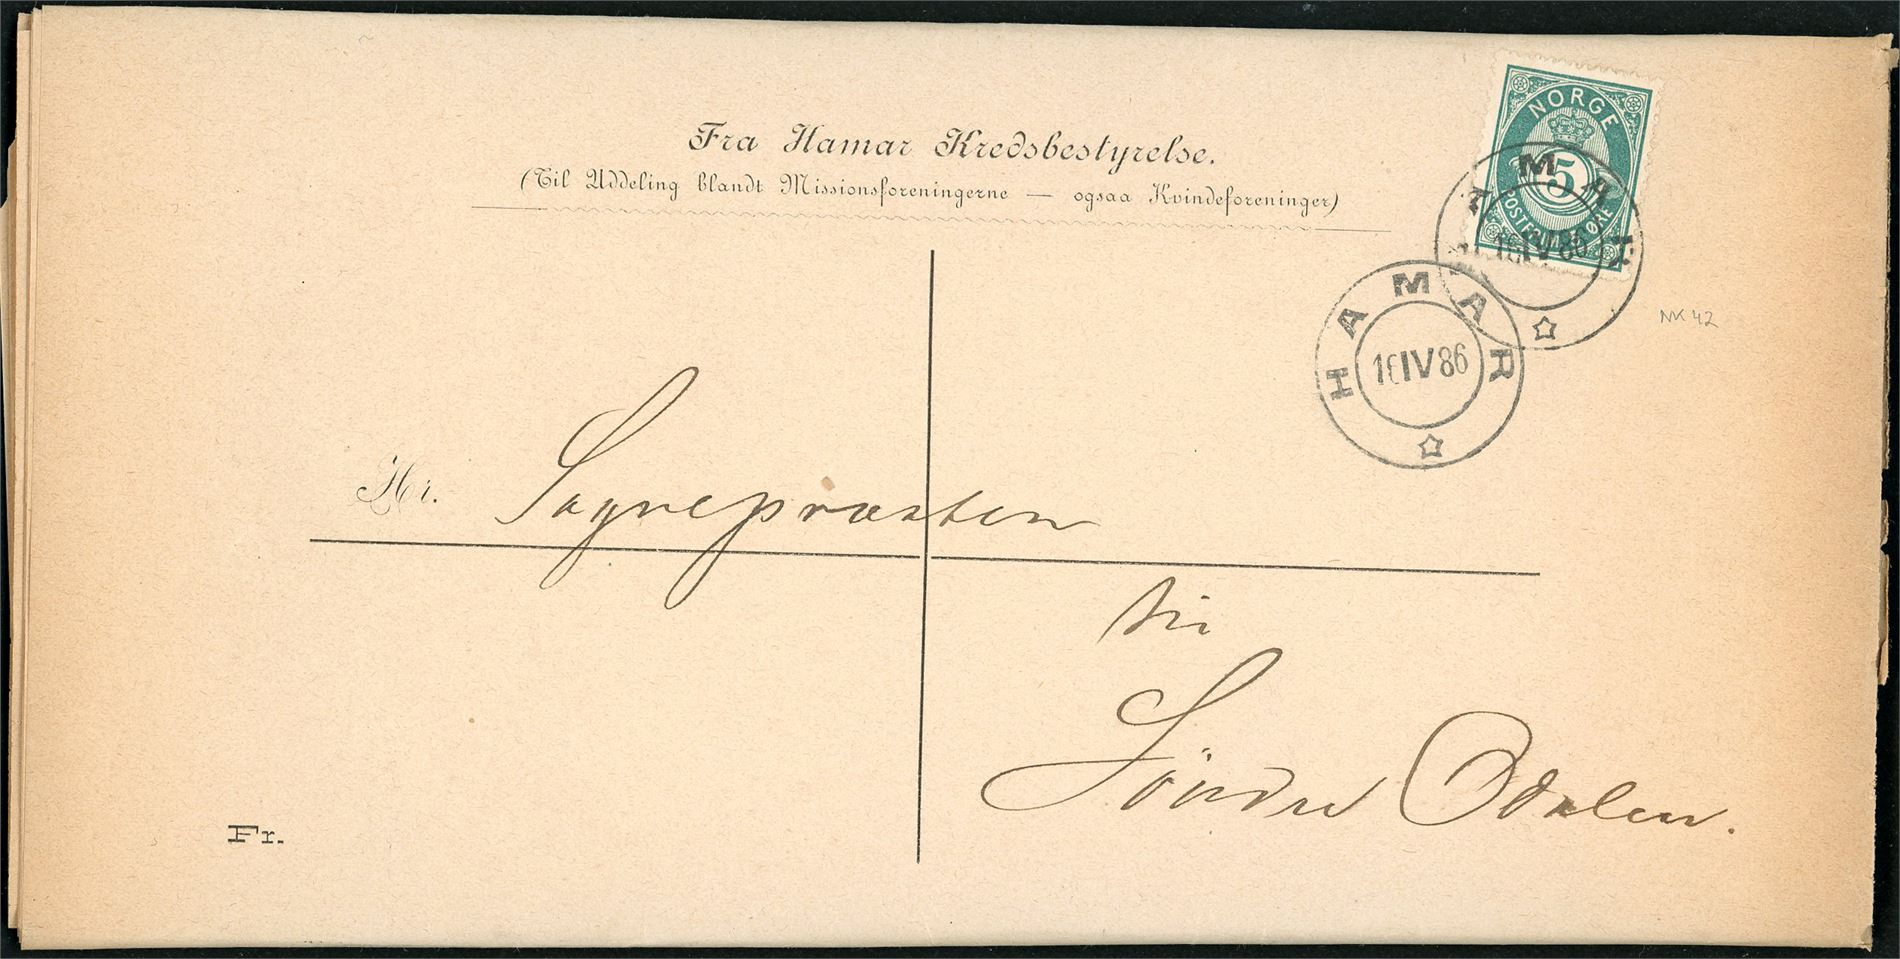 Fra Hamar Kredsbestyrelse.
(Til Uddeling blandt Missionsforeningerne — ogsaa Kvindeforeninger)
NORGE
5
POSTFRIM. ØRE
HAMAR
IV 86
HAMAR
IV 86
NK 42
Hr. Sognepræsten
til
Söndre Odalen.
Fr.